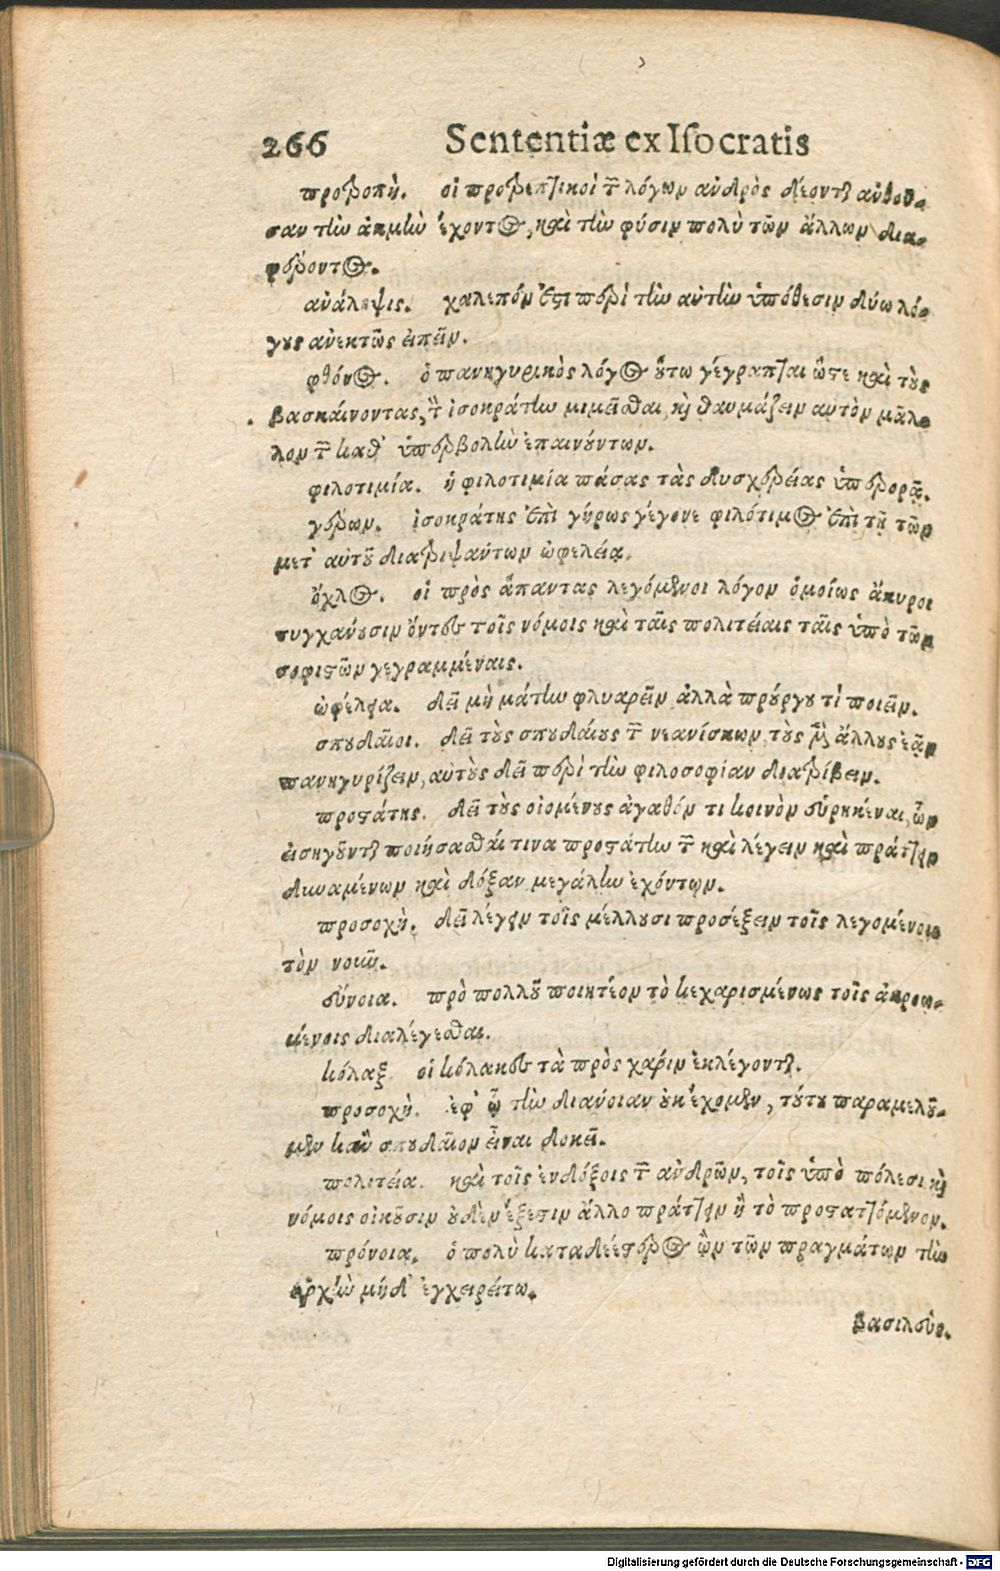 266 Sententiæ ex Isocratis
προτροπὴ. οἱ προτρεπτικοὶ τῶν λόγων ἀνδρὸς δέονται ἀνθοῦ-
σαν τὴν ἀκμὴν ἔχοντος, καὶ τὴν φύσιν πολὺ τῶν ἄλλων δια-
φέροντος.
ἀνάληψις. χαλεπόν ἐστι περὶ τὴν αὐτὴν ὑπόθεσιν δύω λό-
γους ἀνεκτῶς εἰπεῖν.
φθόνος. ὁ πανηγυρικὸς λόγος οὕτω γέγραπται ὥστε καὶ τοὺς
βασκαίνοντας, τ̃ ἰσοκράτην μιμεῖσθαι, καὶ θαυμάζειν αυτὸν μᾶλ-
λον τῶν καθ' ὑπερβολὴν ἐπαινούντων.
φιλοτιμία. ἡ φιλοτιμία πάσας τὰς δυσχερείας ὑπερορᾷ.
γέρων. ἰσοκράτης ἐπὶ γήρως γέγονε φιλότιμος ἐπὶ τῇ τῶν
μετ' αὐτοῦ διατριψάντων ὠφελείᾳ.
ὄχλος. οἱ πρὸς ἅπαντας λεγόμενοι λόγον ὁμοίως ἄκυροι
τυγχάνουσιν ὄντες τοῖς νόμοις καὶ ταῖς πολιτείαις ταῖς ὑπὸ τῶν
σοφιστῶν γεγραμμέναις.
ὠφέλεια. δεῖ μὴ μάτην φλυαρεῖν ἀλλὰ προύργου τὶ ποιεῖν.
σπουδαῖοι. δεῖ τοὺς σπουδαίους τῶν νεανίσκων, τοὺς μὲν ἄλλους ἐᾶν
πανηγυρίζειν, αὐτοὺς δεῖ περὶ τὴν φιλοσοφίαν διατρίβειν.
προστάτης. δεῖ τοὺς οἰομένους ἀγαθόν τι κοινὸν εὑρηκέναι, ὧν
εἰσηγοῦνται ποιήσασθαί τινα προστάτην τῶν καὶ λέγειν καὶ πράττειν
δυναμένων καὶ δόξαν μεγάλην ἐχόντων.
προσοχὴ. δεῖ λέγειν τοῖς μέλλουσι προσέξειν τοῖς λεγομένοις
τὸν νοῦν.
εὔνοια. πρὸ πολλοῦ ποιητέον τὸ κεχαρισμένως τοῖς ἀκροω-
μένοις διαλέγεσθαι.
κόλαξ. οἱ κόλακες τὰ πρὸς χάριν ἐκλέγονται.
προσοχὴ. ἐφ' ᾧ τὴν διάνοιαν οὐκ ἔχομεν, τούτου παραμελοῦ-
μεν κἂν σπουδαῖον εἶναι δοκεῖ.
πολιτεία. καὶ τοῖς ἐνδόξοις τῶν ἀνδρῶν, τοῖς ὑπὸ πόλεσι καὶ
νόμοις οἰκοῦσιν οὐδὲν ἔξεστιν ἄλλο πράττειν ἢ τὸ προσταττόμενον.
πρόνοια. ὁ πολὺ καταδεέστερος ὢν τῶν πραγμάτων τὴν
ἀρχὴν μήδ' ἐγχειρείτω.
βασιλεὺς.
Digitalisierung gefördert durch die Deutsche Forschungsgemeinschaft - DFG